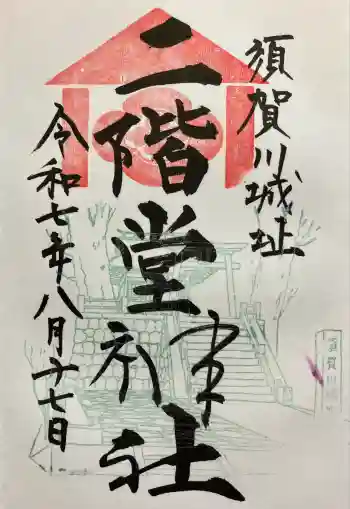 須賀川城址
二階堂神社
令和七年八月十七日
須賀川城址